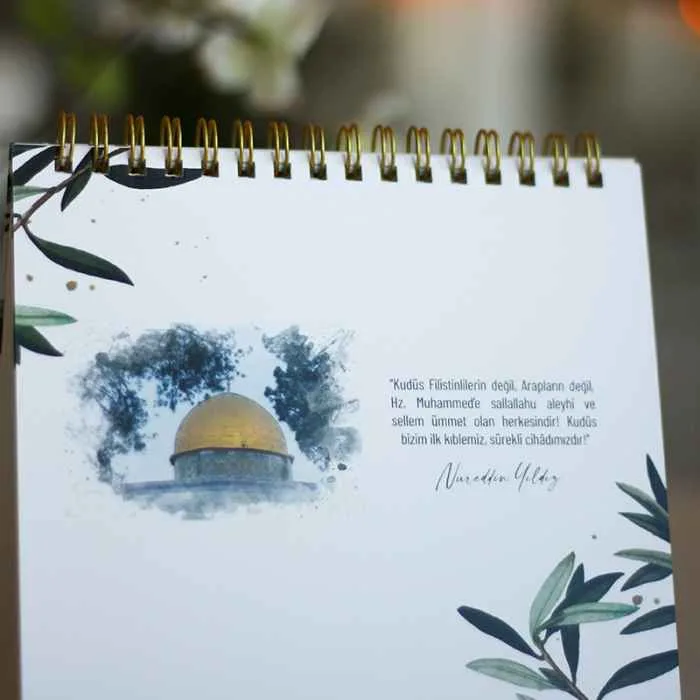 "Kudüs Filistinlilerin değil, Arapların değil,
Hz. Muhammed'e sallallahu aleyhi ve
sellem ümmet olan herkesindir! Kudüs
bizim ilk kıblemiz, sürekli cihâdımızdır!"
Nureddin Yıldız